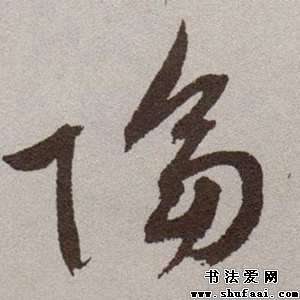 陷
书法爱网
www.shufaai.com